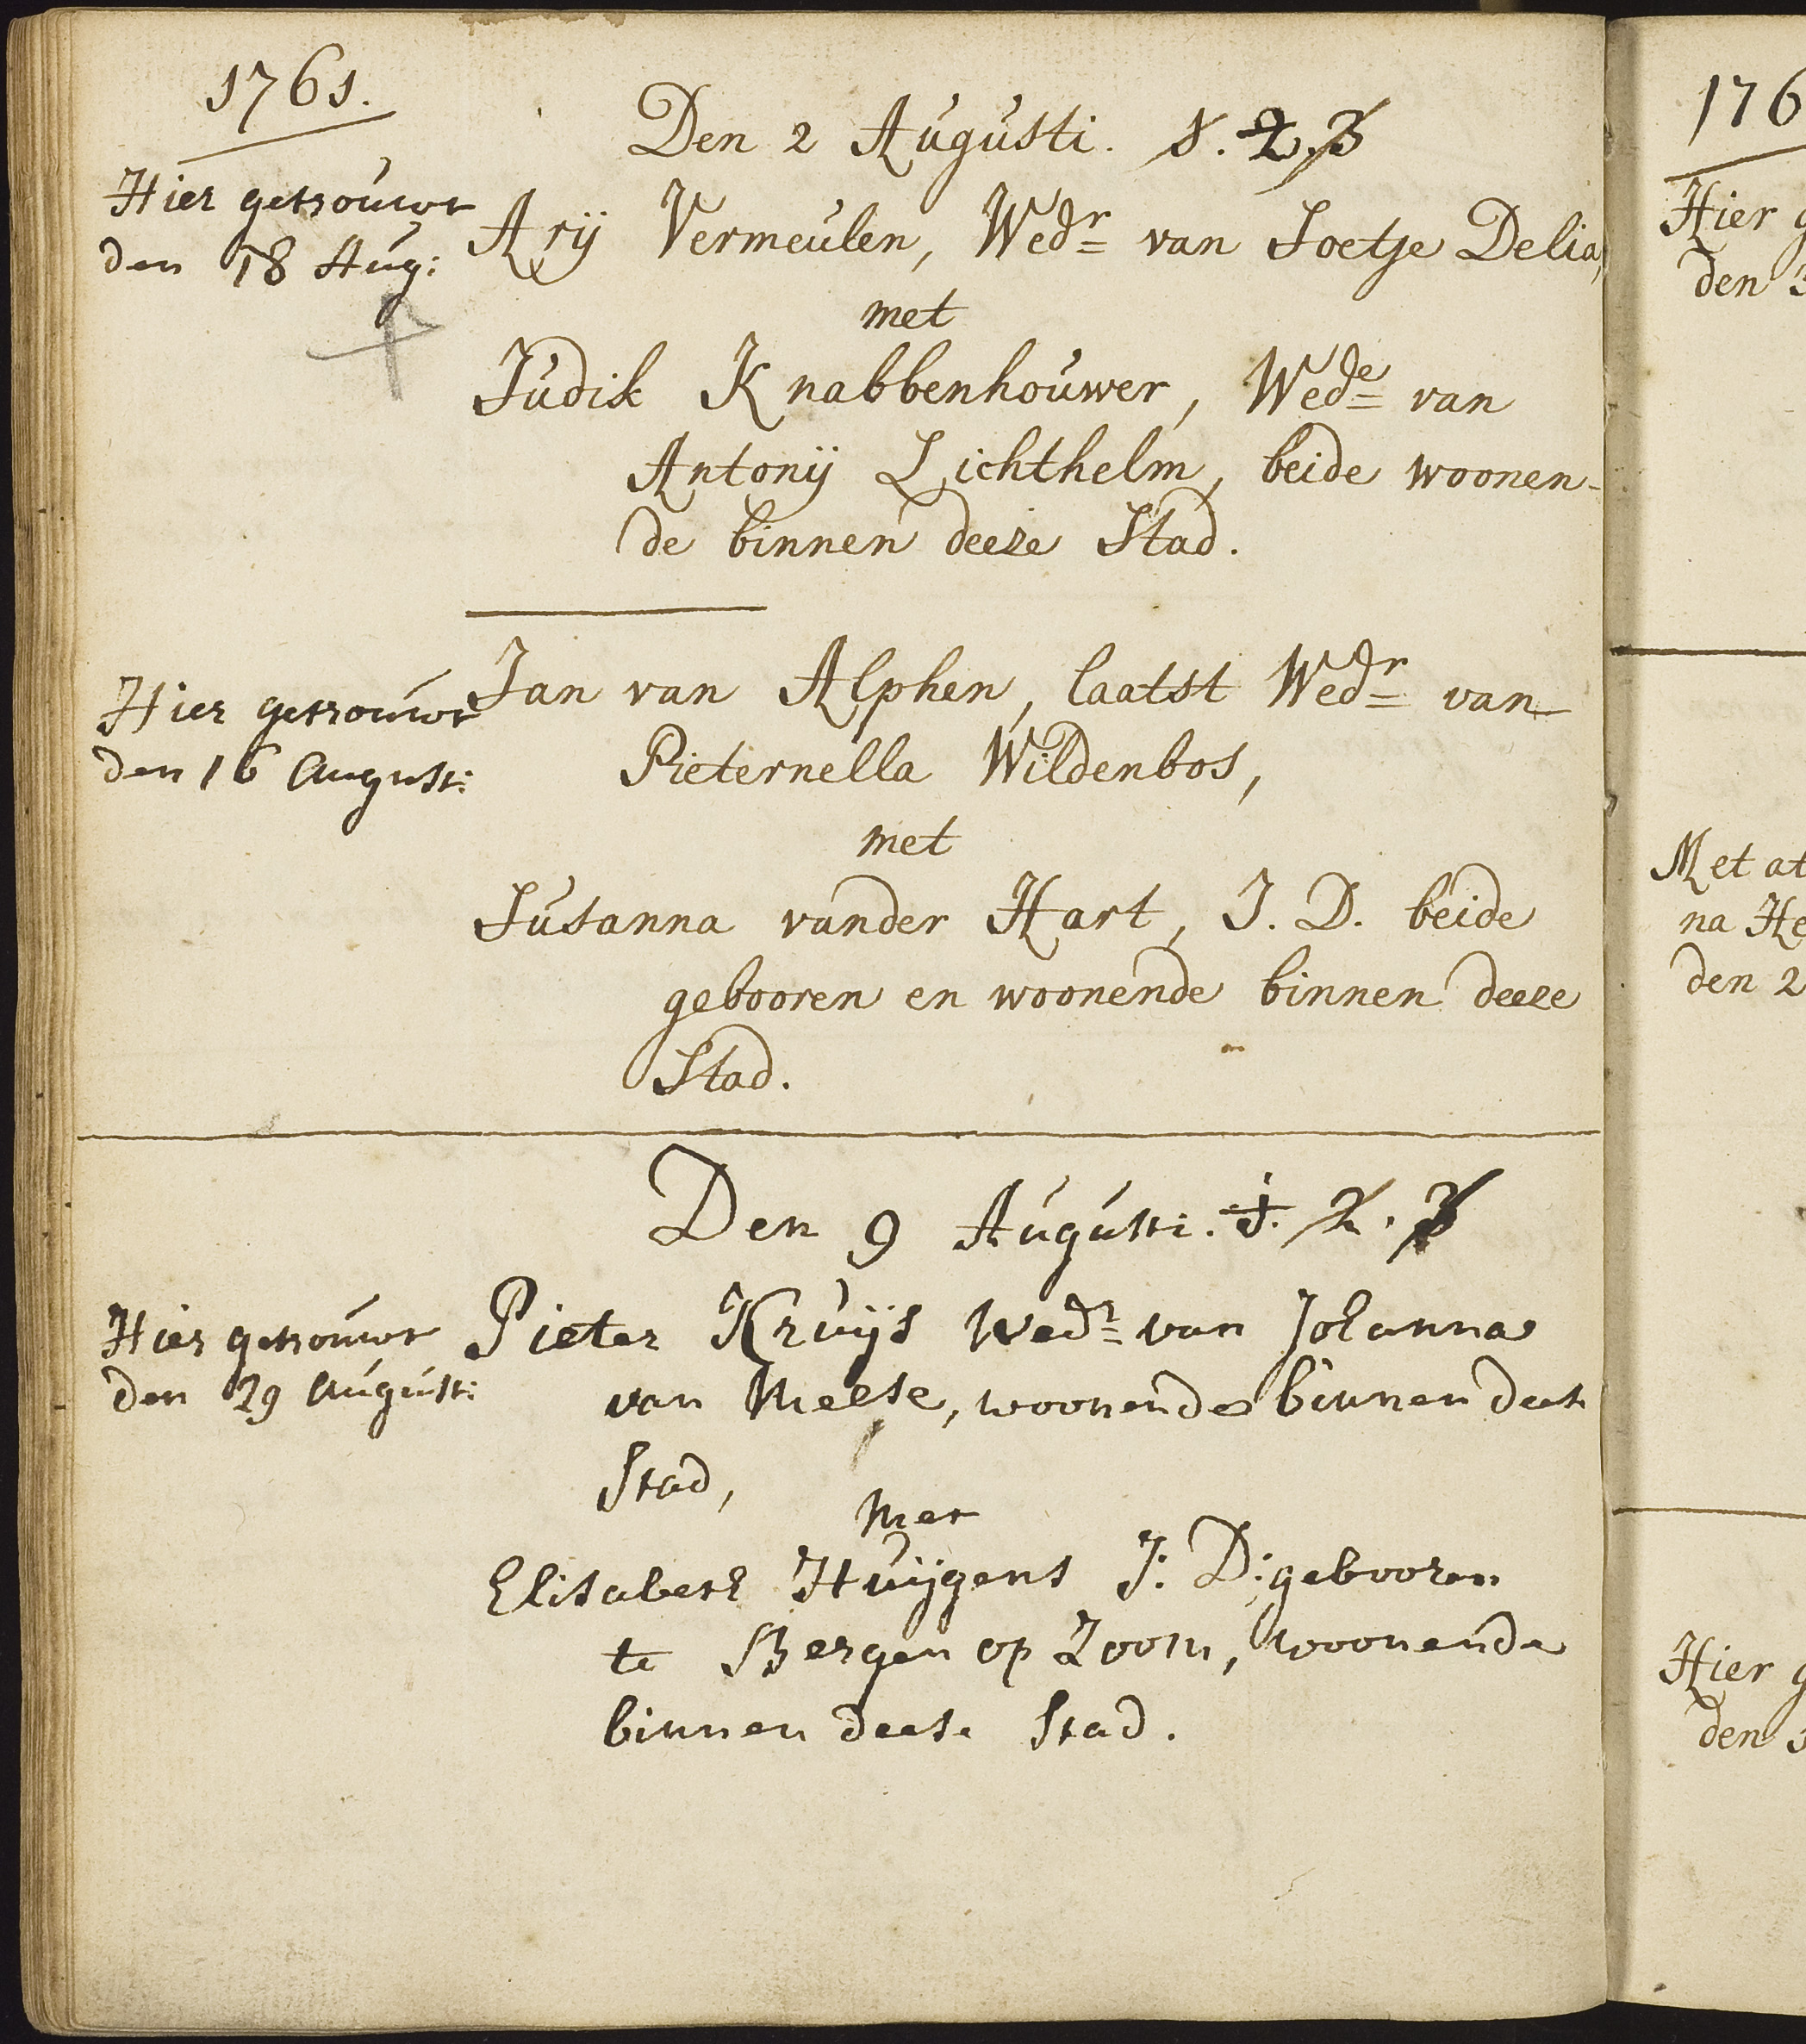 1761.
Den 2 Augusti. 1. 2. 3
Hier getrouwt
den 18 Aug:
Arij Vermeulen, Wedr= van Soetje Delia,
met
Judik Knabbenhouwer, Wede= van
Antonij Lichthelm, beide woonen-
de binnen deeze Stad.
Hier getrouwt
den 16 August:
Jan van Alphen, laatst Wedr= van
Pieternella Wildenbos,
met
Susanna vander Hart, J. D. beide
gebooren en woonende binnen deeze
Stad.
Den 9 Augusti. 1. 2. 3
Hier getrouwt
den 29 August:
Pieter Kruijs Wedr= van Johanna
van Meese, woonende binnen dese
Stad,
met
Elisabeth Huijgens J: D: gebooren
te Bergen op Zoom, woonende
binnen deese Stad.
176
Hier g
den 3
Met at
na He
den 2
Hier g
den 3